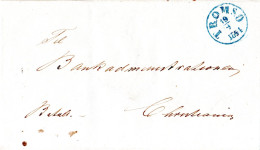 TROMSØ
19
7
1851
Til
Bankadministrationen
Betalt.
Christiania